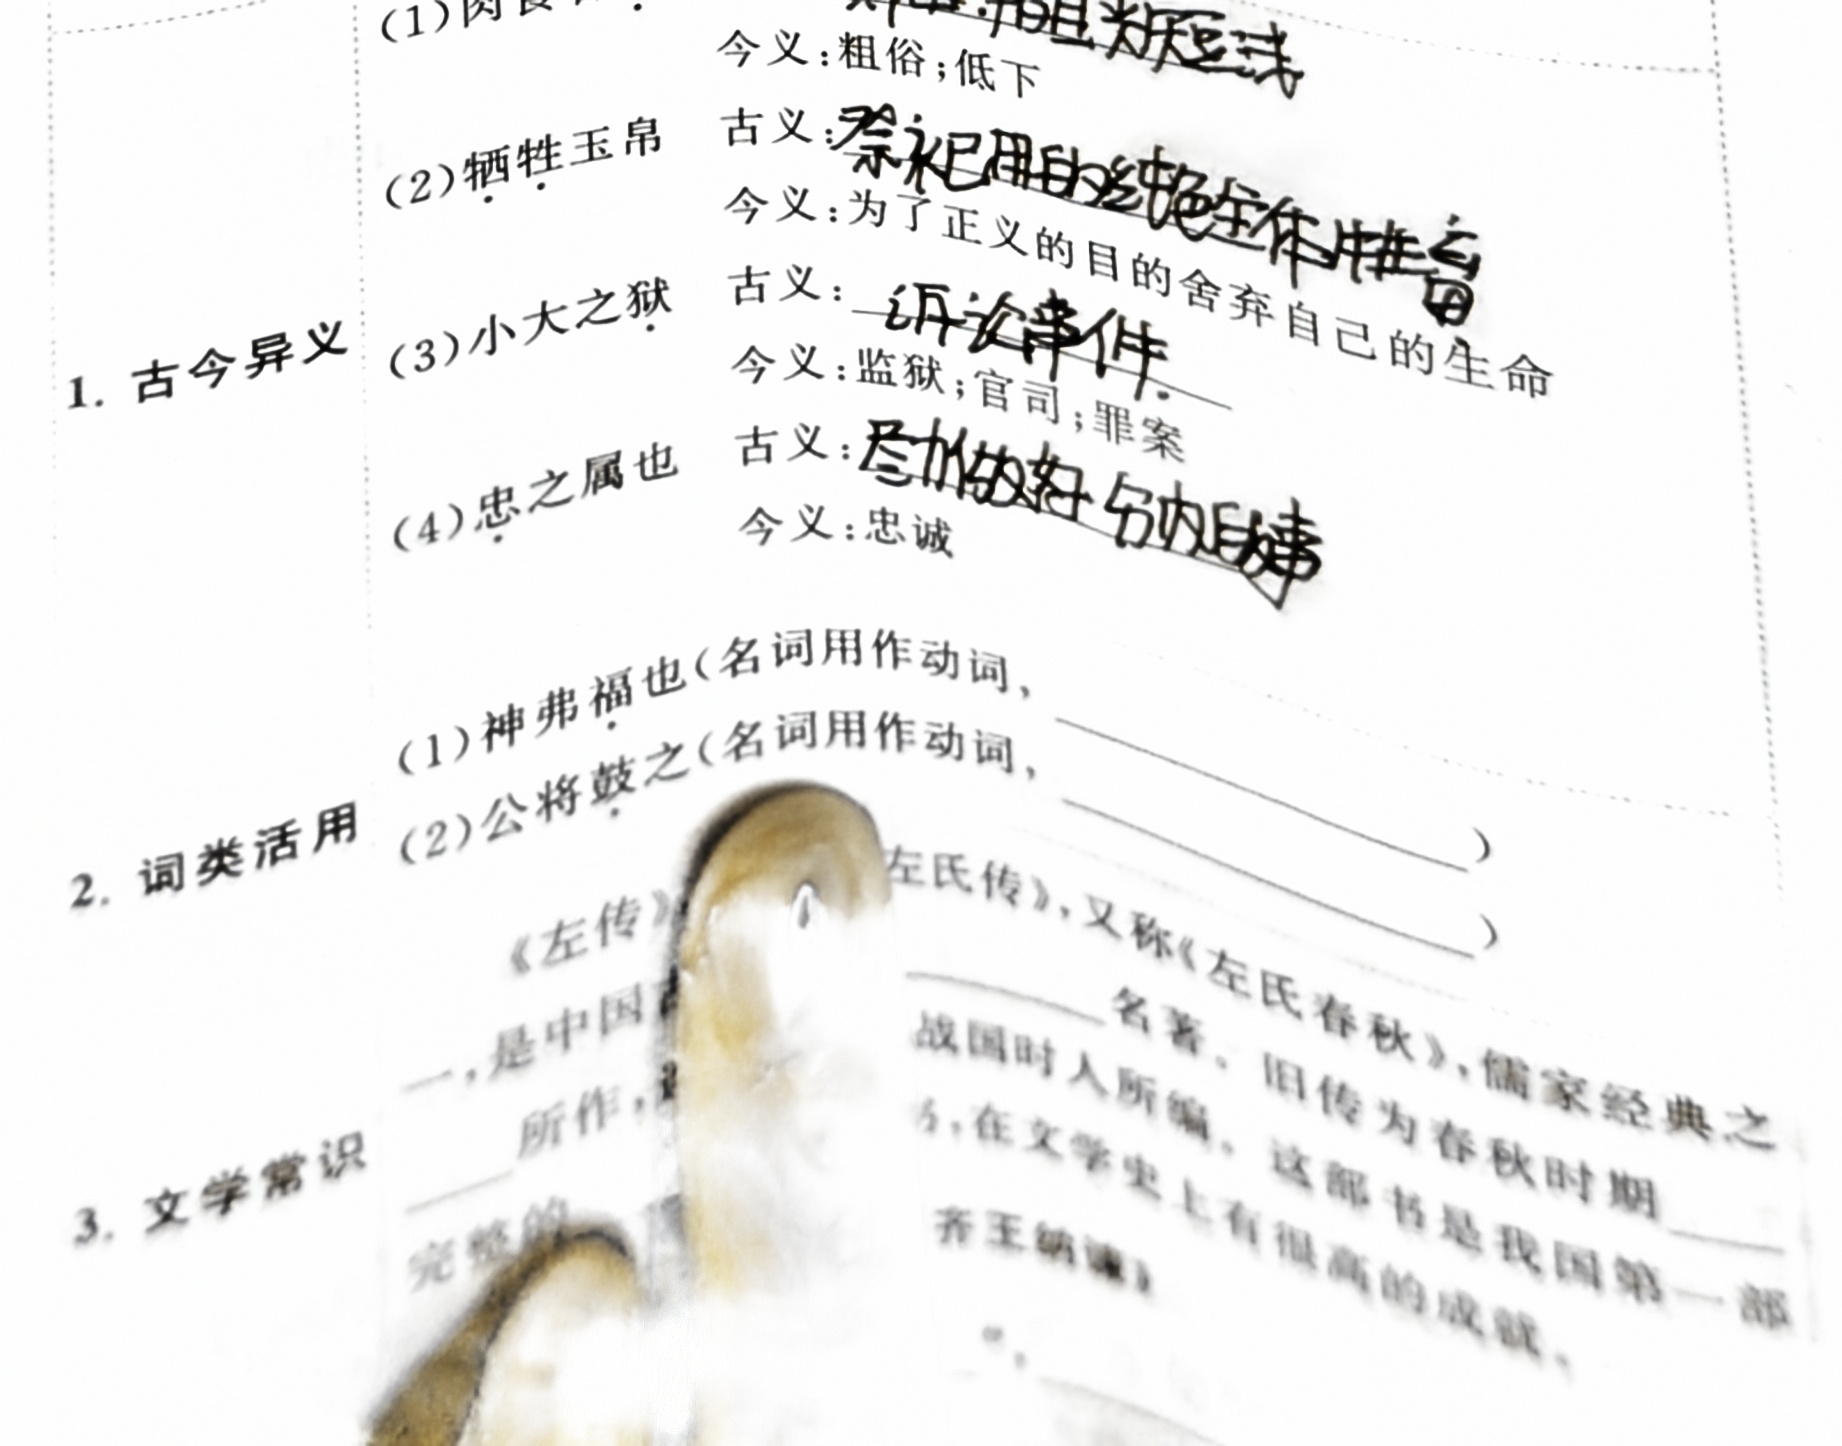 (1)肉食
目短浅
今义:粗俗;低下
(2)牺牲玉帛 古义:祭祀用的纯色全体牲畜
今义:为了正义的目的舍弃自己的生命
1. 古今异义
(3)小大之狱 古义:诉讼事件.
今义:监狱;官司;罪案
(4)忠之属也 古义:尽力做好分内的事
今义:忠诚
2. 词类活用
(1)神弗福也(名词用作动词, )
(2)公将鼓之(名词用作动词, )
3. 文学常识
《左传》 左氏传》,又称《左氏春秋》,儒家经典之
一,是中国 名著。旧传为春秋时期
所作, 战国时人所编。这部书是我国第一部
完整的 ,在文学史上有很高的成就。
齐王纳谏》